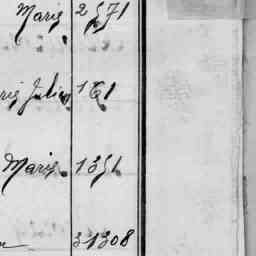 Marie 2571
rie Julien 161
Marie. 1351
31308